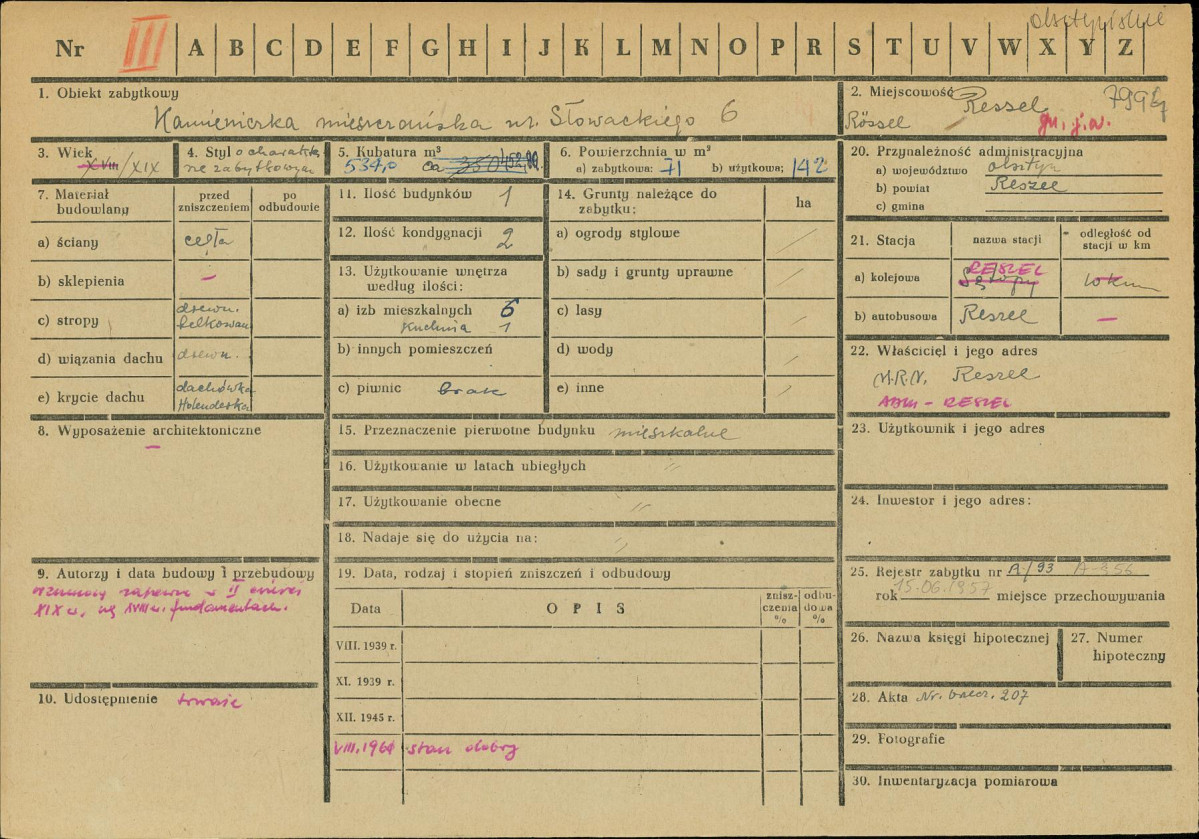 olsztyńskie
Nr III A B C D E F G H I J K L M N O P R S T U V W X Y Z
1. Obiekt zabytkowy
Kamieniczka mieszczańska ul. Słowackiego 6
2. Miejscowość Reszel
Rössel
3. Wiek
XVIII/XIX
4. Styl o charakt.
nie zabytkowym
5. Kubatura m³
534,0 ca
6. Powierzchnia w m²
a) zabytkowa: 71 b) użytkowa; 142
20. Przynależność administracyjna
a) województwo olsztyn
b) powiat Reszel
c) gmina
7. Materiał budowlany
przed zniszczeniem
po odbudowie
a) ściany cegła
b) sklepienia –
c) stropy drewn. belkowan
d) wiązania dachu drewn.
e) krycie dachu dachówka Holenderka
8. Wyposażenie architektoniczne
–
9. Autorzy i data budowy i przebudowy
wzniesiony zapewne w II ćwierci
XIX w. na XVIII w. fundamentach.
10. Udostępnienie
11. Ilość budynków 1
12. Ilość kondygnacji 2
13. Użytkowanie wnętrza
według ilości:
a) izb mieszkalnych 6
Kuchnia 1
b) innych pomieszczeń
c) piwnic brak
14. Grunty należące do
zabytku:
ha
a) ogrody stylowe
b) sady i grunty uprawne
c) lasy
d) wody
e) inne
15. Przeznaczenie pierwotne budynku mieszkalne
16. Użytkowanie w latach ubiegłych "
17. Użytkowanie obecne "
18. Nadaje się do użycia na: "
19. Data, rodzaj i stopień zniszczeń i odbudowy
Data
OPIS
zniszczenia %
odbudowa %
VIII. 1939 r.
XI. 1939 r.
XII. 1945 r.
VIII. 1961 stan dobry
21. Stacja
nazwa stacji
odległość od
stacji w km
a) kolejowa RESZEL
Sątopy 10 km
b) autobusowa Reszel –
22. Właściciel i jego adres
M.R.N. Reszel
ABM – RESZEL
23. Użytkownik i jego adres
24. Inwestor i jego adres:
25. Rejestr zabytku nr A/93 A-356
rok 15.06.1957 miejsce przechowywania
26. Nazwa księgi hipotecznej
27. Numer
hipoteczny
28. Akta Nr. 207
29. Fotografie
30. Inwentaryzacja pomiarowa